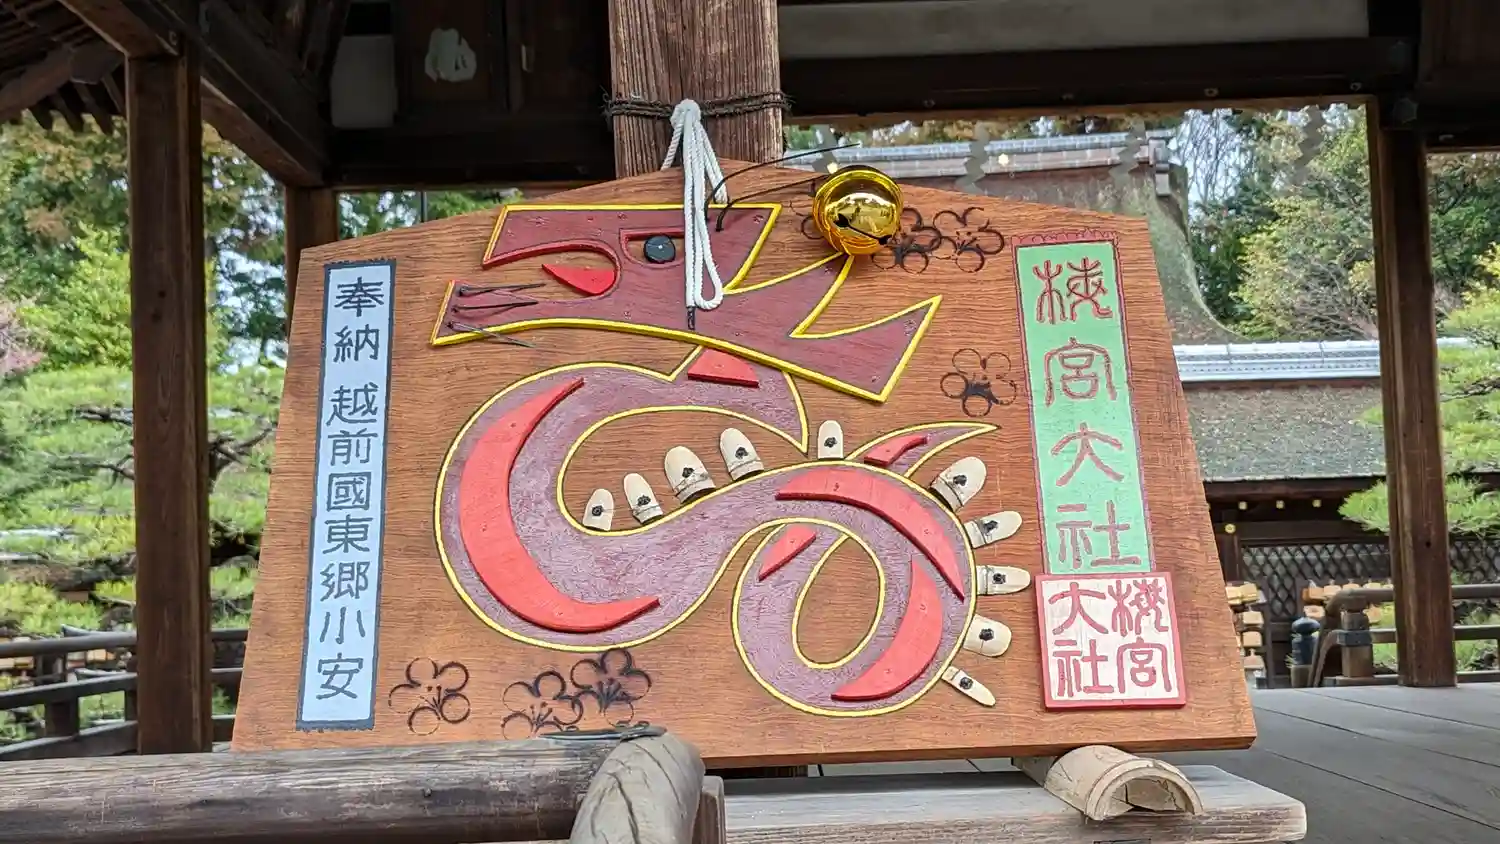 梅宮大社
大社
梅宮
奉納 越前國東郷小安